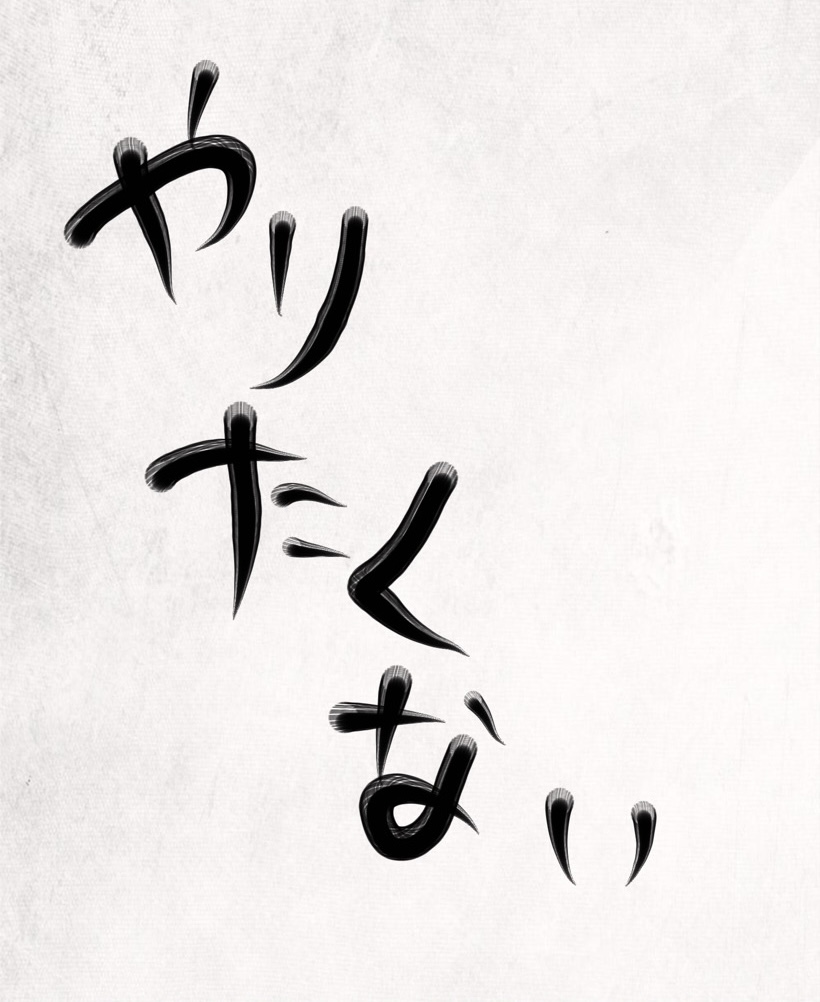 やりたくない